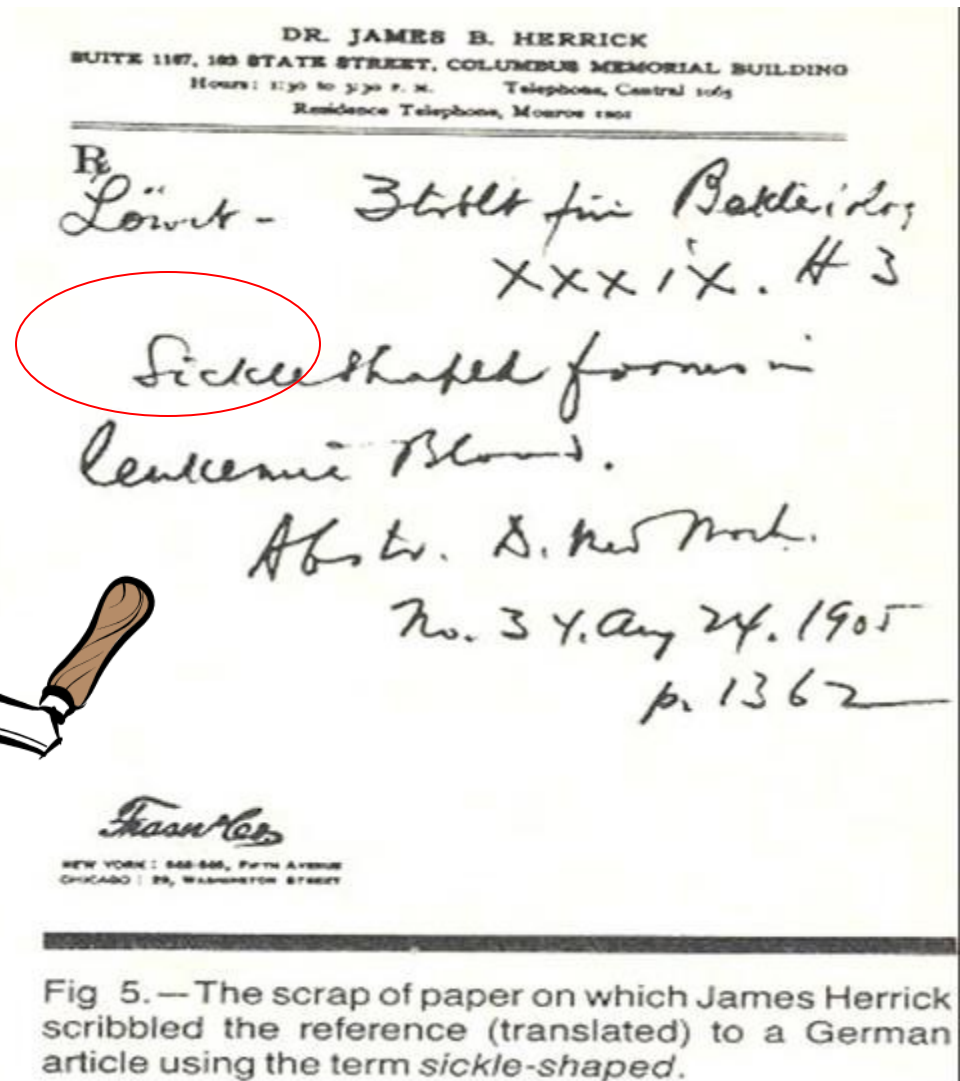 DR. JAMES B. HERRICK
SUITE 1107, 103 STATE STREET, COLUMBUS MEMORIAL BUILDING
Hours: 1:30 to 3:30 P. M. Telephone, Central 1065
Residence Telephone, Monroe
℞
Löwit - für
XXXIX. H 3
Sickle shaped forms in
leukemic Blood.
Abstr. D. Med Woch.
No. 34. Aug 24. 1905
p. 1362
NEW YORK: FIFTH AVENUE
CHICAGO: 29, WASHINGTON STREET
Fig 5.—The scrap of paper on which James Herrick
scribbled the reference (translated) to a German
article using the term sickle-shaped.